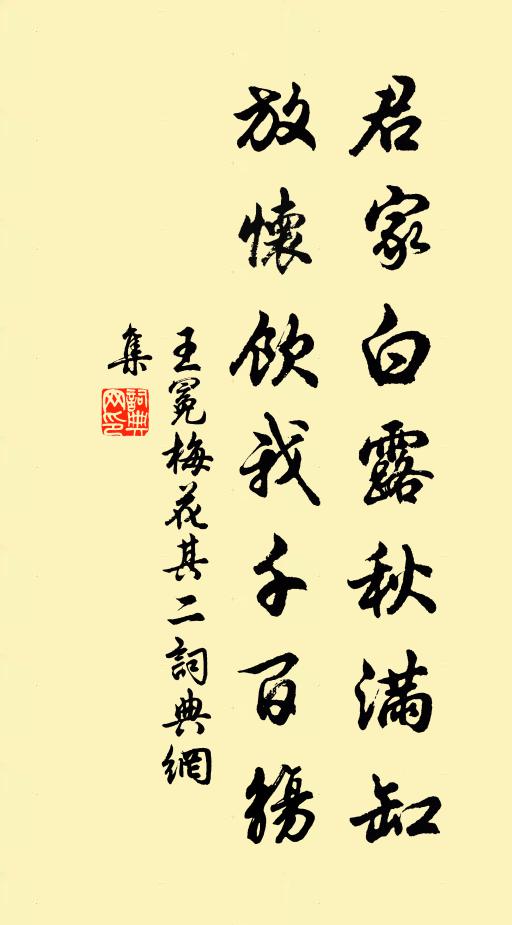 君家白露秋满缸
放懷飲我千百觴
王冕梅花其二詞典網
集
詞典
网印